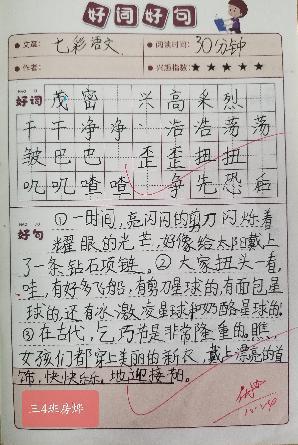 好词好句
文章: 七彩语文 阅读时间: 30分钟
作者: 兴趣指数: ★★★★★
好词 茂密 兴高采烈
干干净净 浩浩荡荡
皱巴巴 歪歪扭扭
叽叽喳喳 争先恐后
好句 ①一时间,亮闪闪的剪刀闪烁着
耀眼的光芒,好像给太阳戴上
了一条钻石项链。②大家扭头一看,
哇,有好多飞船,有剪刀星球的,有面包星
球的,还有冰激凌星球和奶酪星球的。
③在古代,乞巧节是非常隆重的。瞧,
女孩们都穿上美丽的新衣,戴上漂亮的首
饰,快快乐乐地迎接
三4班房烨